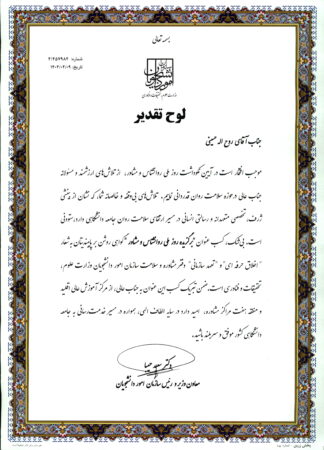 بسمه تعالی
شماره: ۴/۴۵۷۹۸۲
تاریخ: ۱۴۰۳/۰۲/۰۹
سازمان امور دانشجویان
وزارت علوم، تحقیقات و فناوری
لوح تقدیر
جناب آقای روح اله حسینی
موجب افتخار است در آیین نکوداشت روز ملی روانشناس و مشاور، از تلاش‌های ارزشمند و مسئولانه
جناب عالی در حوزه سلامت روان قدردانی نمایم. تلاش‌های بی‌وقفه و خالصانه شما که نشان از بینش
ژرف، تخصصی متعهدانه و رسالتی انسانی در مسیر ارتقای سلامت روان جامعه دانشگاهی دارد، ستودنی
است. بی‌شک، کسب عنوان برگزیده روز ملی روانشناس و مشاور گواهی روشن بر پایبندیتان به شعار
"اخلاق حرفه ای" و "تعهد سازمانی" دفتر مشاوره و سلامت سازمان امور دانشجویان وزارت علوم،
تحقیقات و فناوری است. ضمن تبریک کسب این عنوان به جناب عالی، از مرکز آموزش عالی اقلید
و منطقه هفت مراکز مشاوره، امید دارد در سایه الطاف الهی، همواره در مسیر خدمت‌رسانی به جامعه
دانشگاهی کشور موفق و سربلند باشید.
دکتر سعید حبیبا
معاون وزیر و رئیس سازمان امور دانشجویان